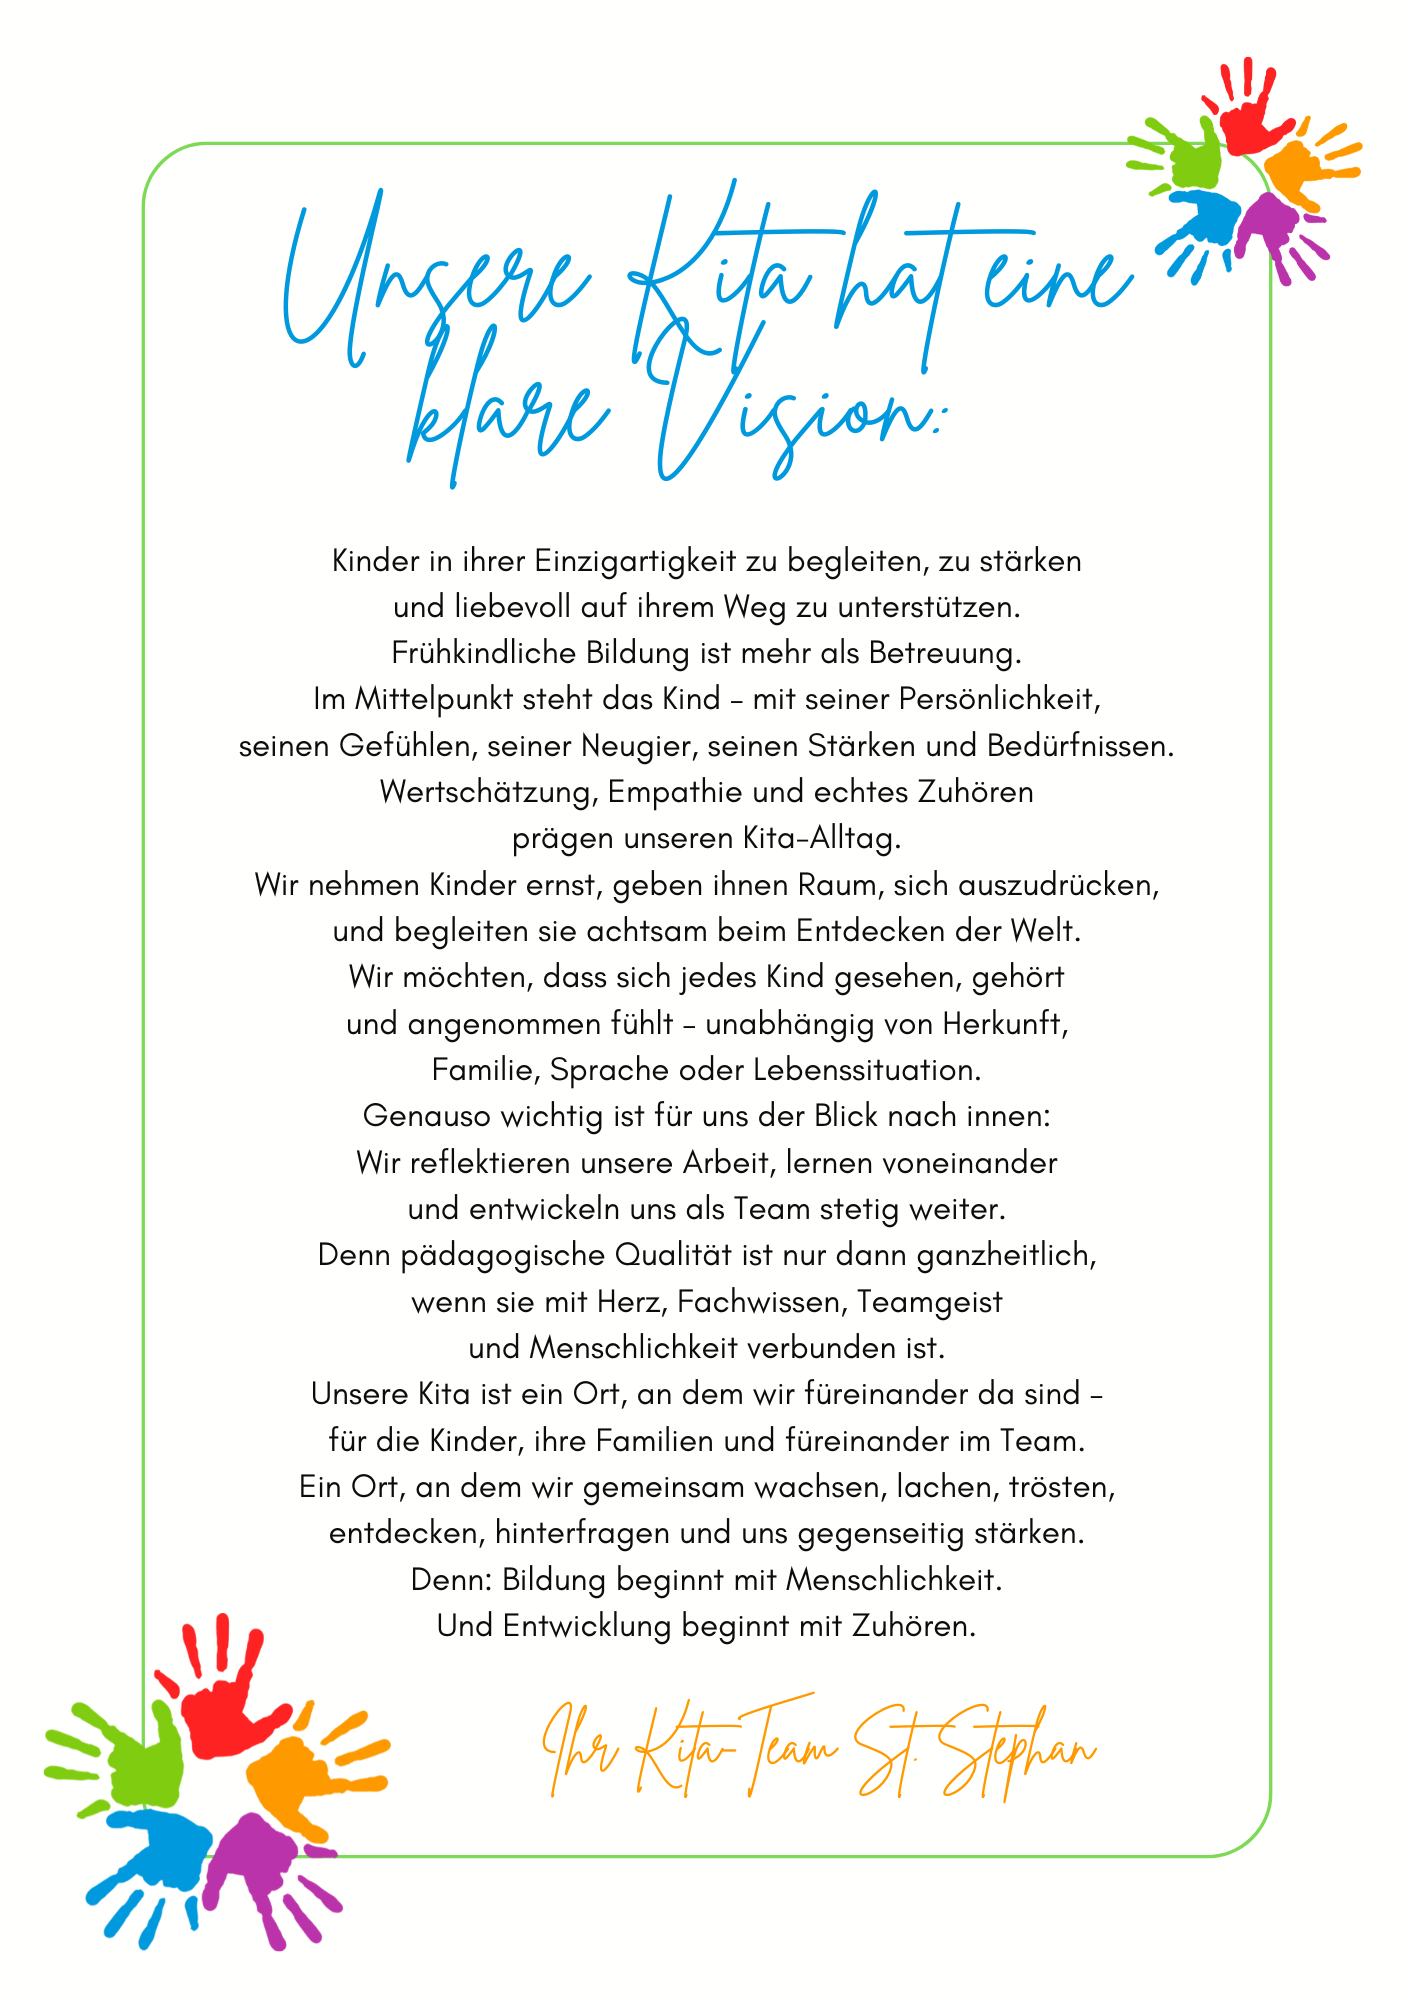 Unsere Kita hat eine
klare Vision:
Kinder in ihrer Einzigartigkeit zu begleiten, zu stärken
und liebevoll auf ihrem Weg zu unterstützen.
Frühkindliche Bildung ist mehr als Betreuung.
Im Mittelpunkt steht das Kind – mit seiner Persönlichkeit,
seinen Gefühlen, seiner Neugier, seinen Stärken und Bedürfnissen.
Wertschätzung, Empathie und echtes Zuhören
prägen unseren Kita-Alltag.
Wir nehmen Kinder ernst, geben ihnen Raum, sich auszudrücken,
und begleiten sie achtsam beim Entdecken der Welt.
Wir möchten, dass sich jedes Kind gesehen, gehört
und angenommen fühlt – unabhängig von Herkunft,
Familie, Sprache oder Lebenssituation.
Genauso wichtig ist für uns der Blick nach innen:
Wir reflektieren unsere Arbeit, lernen voneinander
und entwickeln uns als Team stetig weiter.
Denn pädagogische Qualität ist nur dann ganzheitlich,
wenn sie mit Herz, Fachwissen, Teamgeist
und Menschlichkeit verbunden ist.
Unsere Kita ist ein Ort, an dem wir füreinander da sind –
für die Kinder, ihre Familien und füreinander im Team.
Ein Ort, an dem wir gemeinsam wachsen, lachen, trösten,
entdecken, hinterfragen und uns gegenseitig stärken.
Denn: Bildung beginnt mit Menschlichkeit.
Und Entwicklung beginnt mit Zuhören.
Ihr Kita-Team St. Stephan